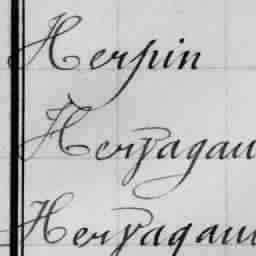 Herpin
Hervagau
Hervagau